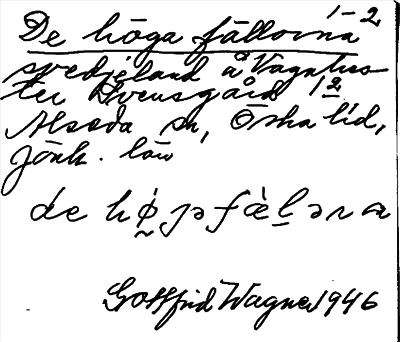 1-2
De höga fällorna
svedjeland å Vagnhes-
ter Svensgård 1 2
Alseda sn, Östra hd,
Jönk. län
de hǿ̰ɟə fæ̀l̲əṛna
Gottfrid Wagner 1946